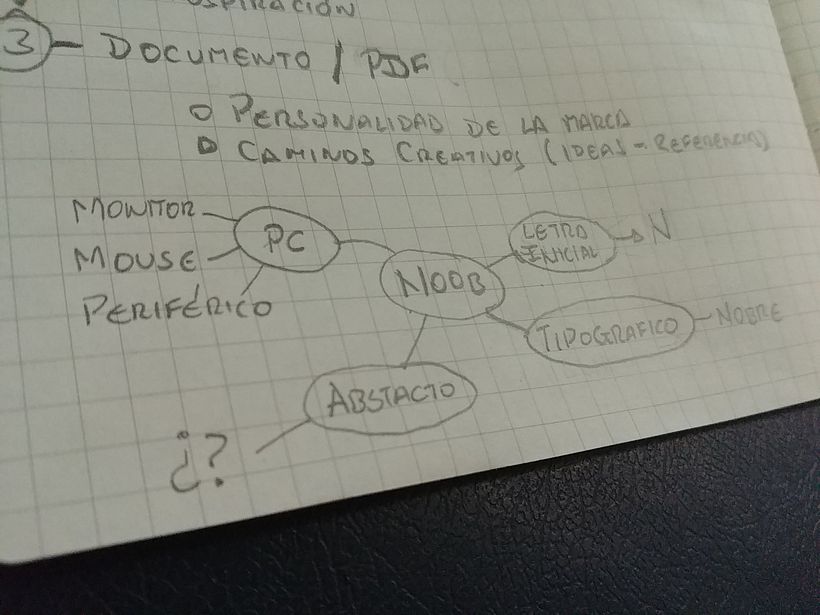 3 - DOCUMENTO / PDF
PERSONALIDAD DE LA MARCA
CAMINOS CREATIVOS (IDEAS - REFERENCIA)
MONITOR
MOUSE
PERIFÉRICO
PC
NOOB
LETRA
INICIAL
N
TIPOGRAFICO
NOBRE
ABSTACTO
¿?